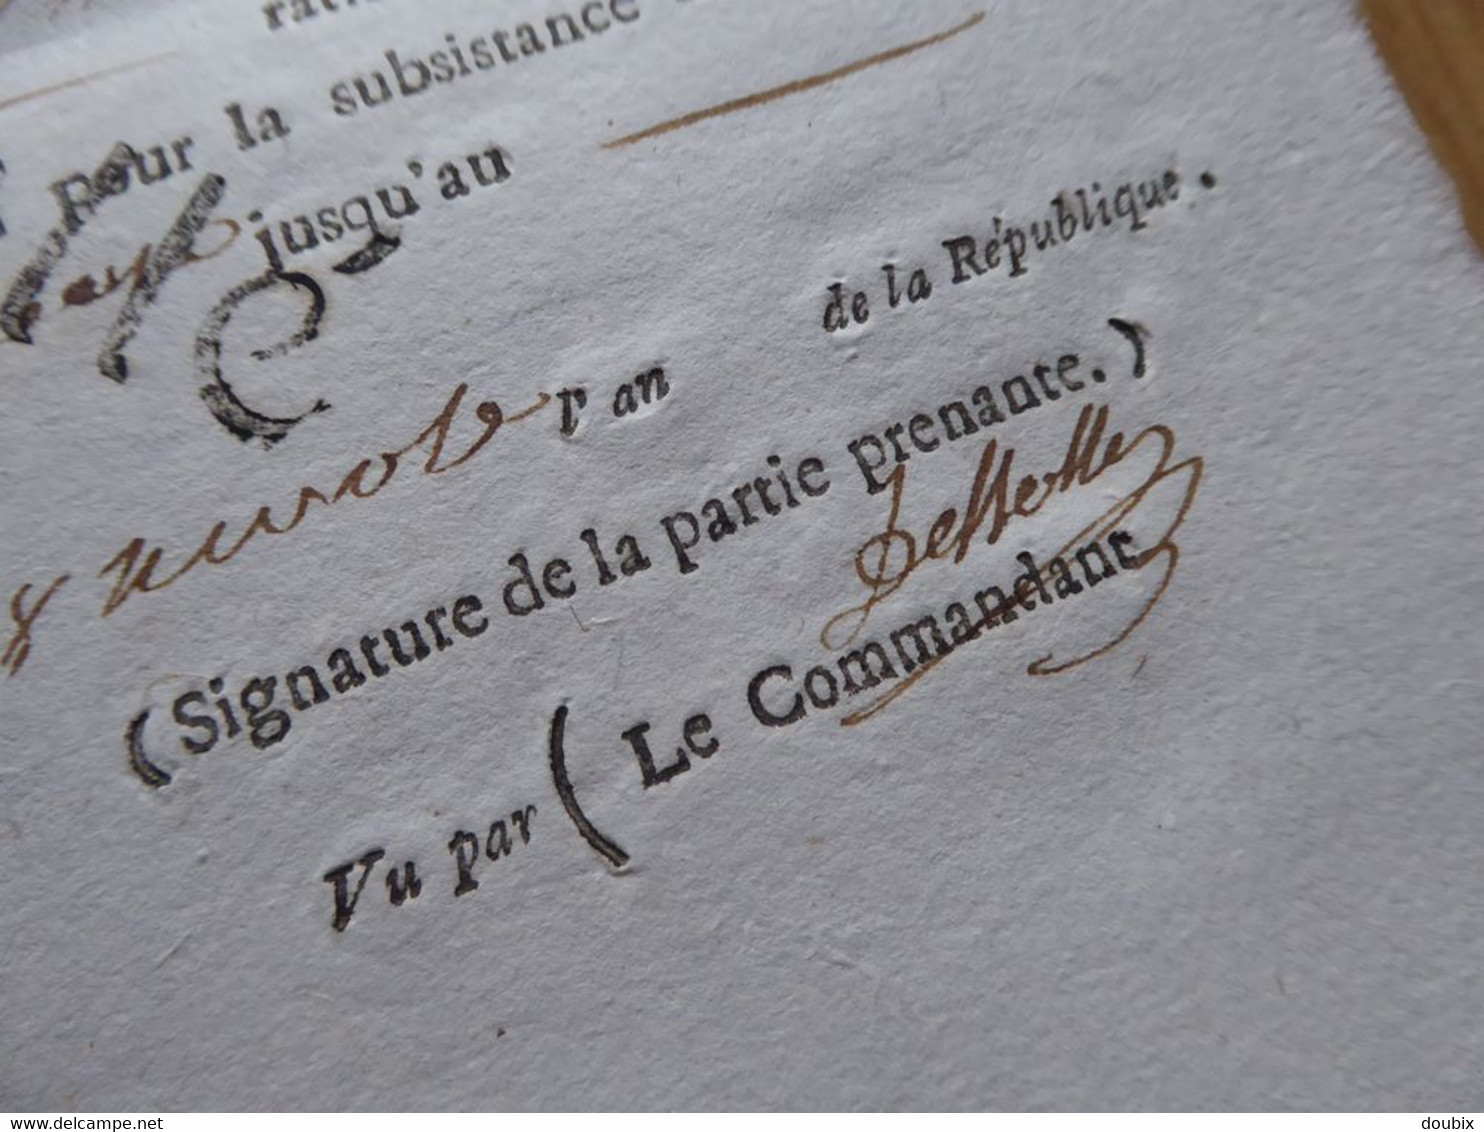 pour la subsistance
jusqu'au
8 nivose l'an de la République.
(Signature de la partie prenante.)
Vu par ( Le Commandant
delcampe.net
doubix